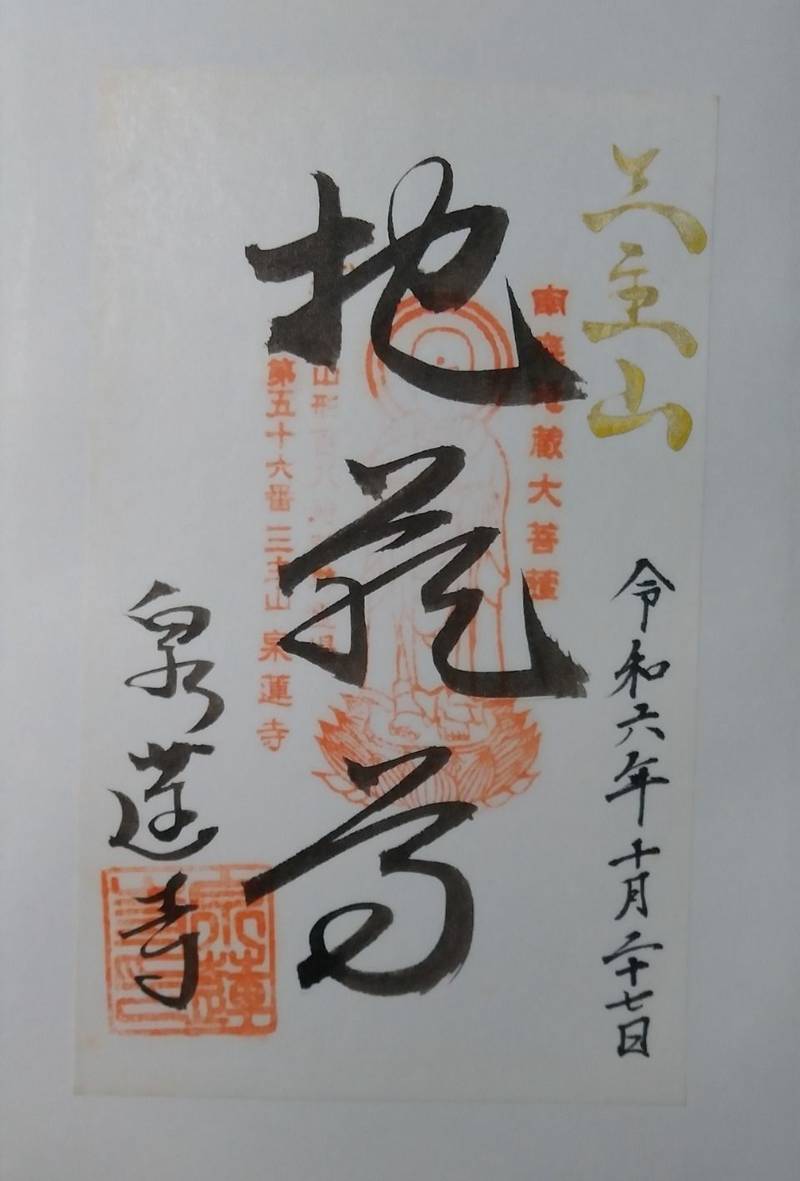 三主山
令和六年十月二十七日
南無地蔵大菩薩
地蔵尊
山形
第五十六番三主山泉蓮寺
泉蓮寺
泉蓮